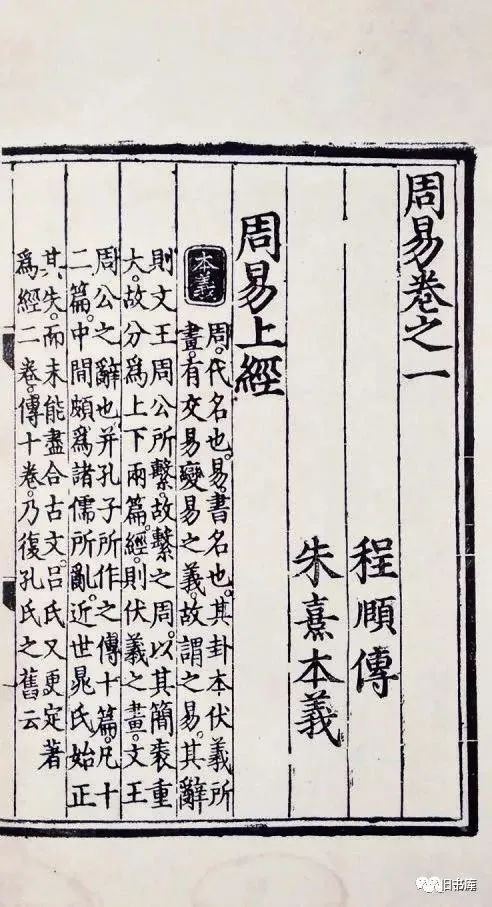 周易卷之一
程頤傳
朱熹本義
周易上經
本義
周。代名也。易。書名也。其卦本伏羲所
畫。有交易變易之義。故謂之易。其辭
則文王周公所繫。故繫之周。以其簡袠重
大。故分爲上下兩篇。經。則伏羲之畫。文王
周公之辭也。并孔子所作之傳十篇。凡十
二篇。中間頗爲諸儒所亂。近世晁氏始正
其失。而未能盡合古文。呂氏又更定著
爲經二卷。傳十卷。乃復孔氏之舊云
旧书库